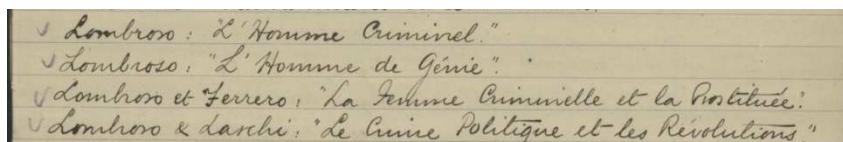 ✓ Lombroso: "L'Homme Criminel."
✓ Lombroso: "L'Homme de Génie".
✓ Lombroso et Ferrero: "La Femme Criminelle et la Prostituée".
✓ Lombroso & Laschi: "Le Crime Politique et les Révolutions"